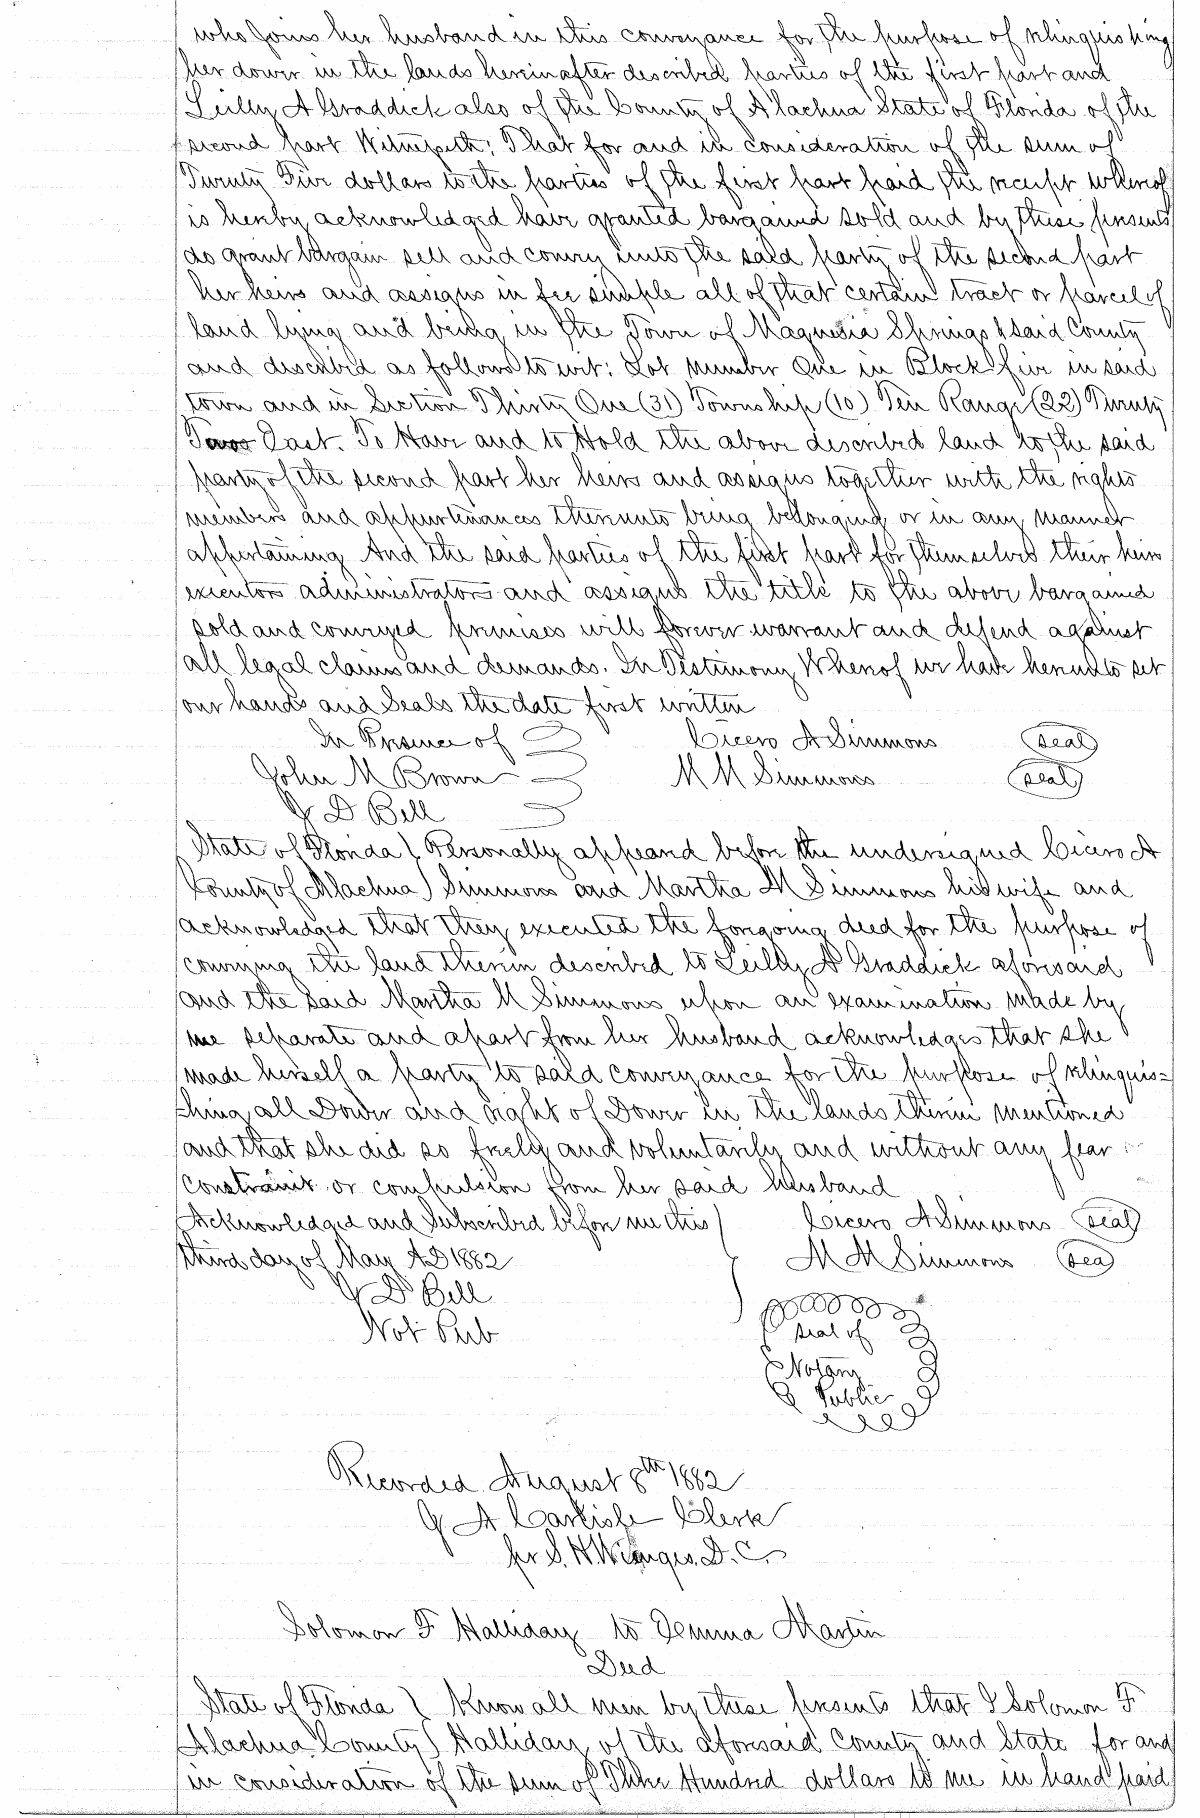 who joins her husband in this conveyance for the purpose of relinquishing
her dower in the lands hereinafter described parties of the first part and
Leilly A Graddick also of the County of Alachua State of Florida of the
second part Witnesseth; That for and in consideration of the sum of
Twenty Five dollars to the parties of the first part paid the receipt whereof
is hereby acknowledged have granted bargained sold and by these presents
do grant bargain sell and convey unto the said party of the second part
her heirs and assigns in fee simple all of that certain tract or parcel of
land lying and being in the Town of Magnesia Springs & said County
and described as follows to wit: Lot number One in Block five in said
town and in Section Thirty One (31) Township (10) Ten Range (22) Twenty
Two East. To Have and to Hold the above described land to the said
party of the second part her heirs and assigns together with the rights
members and appurtenances thereunto being belonging or in any manner
appertaining And the said parties of the first part for themselves their heirs
executors administrators and assigns the title to the above bargained
sold and conveyed premises will forever warrant and defend against
all legal claims and demands. In Testimony Whereof we have hereunto set
our hands and Seals the date first written
In Presence of Cicero A Simmons seal
John M Brown M M Simmons seal
J D Bell
State of Florida Personally appeared before the undersigned Cicero A
County of Alachua Simmons and Martha M Simmons his wife and
acknowledged that they executed the foregoing deed for the purpose of
conveying the land therein described to Leilly A Graddick aforesaid
and the said Martha M Simmons upon an examination made by
me separate and apart from her husband acknowledges that she
made herself a party to said conveyance for the purpose of relinquis=
=hing all Dower and right of Dower in the lands therein mentioned
and that she did so freely and voluntarily and without any fear
Constraint or compulsion from her said husband
Acknowledged and Subscribed before me this Cicero A Simmons seal
third day of May AD 1882 M M Simmons sea
J D Bell
Not Pub
seal of
Notary
Public
Recorded August 8th 1882
J A Carlisle Clerk
per S. H. D. C.
Solomon F Halliday to Jemima Martin
Deed
State of Florida Know all men by these presents that I Solomon F
Alachua County Halliday of the aforesaid County and State for and
in consideration of the sum of Three Hundred dollars to me in hand paid